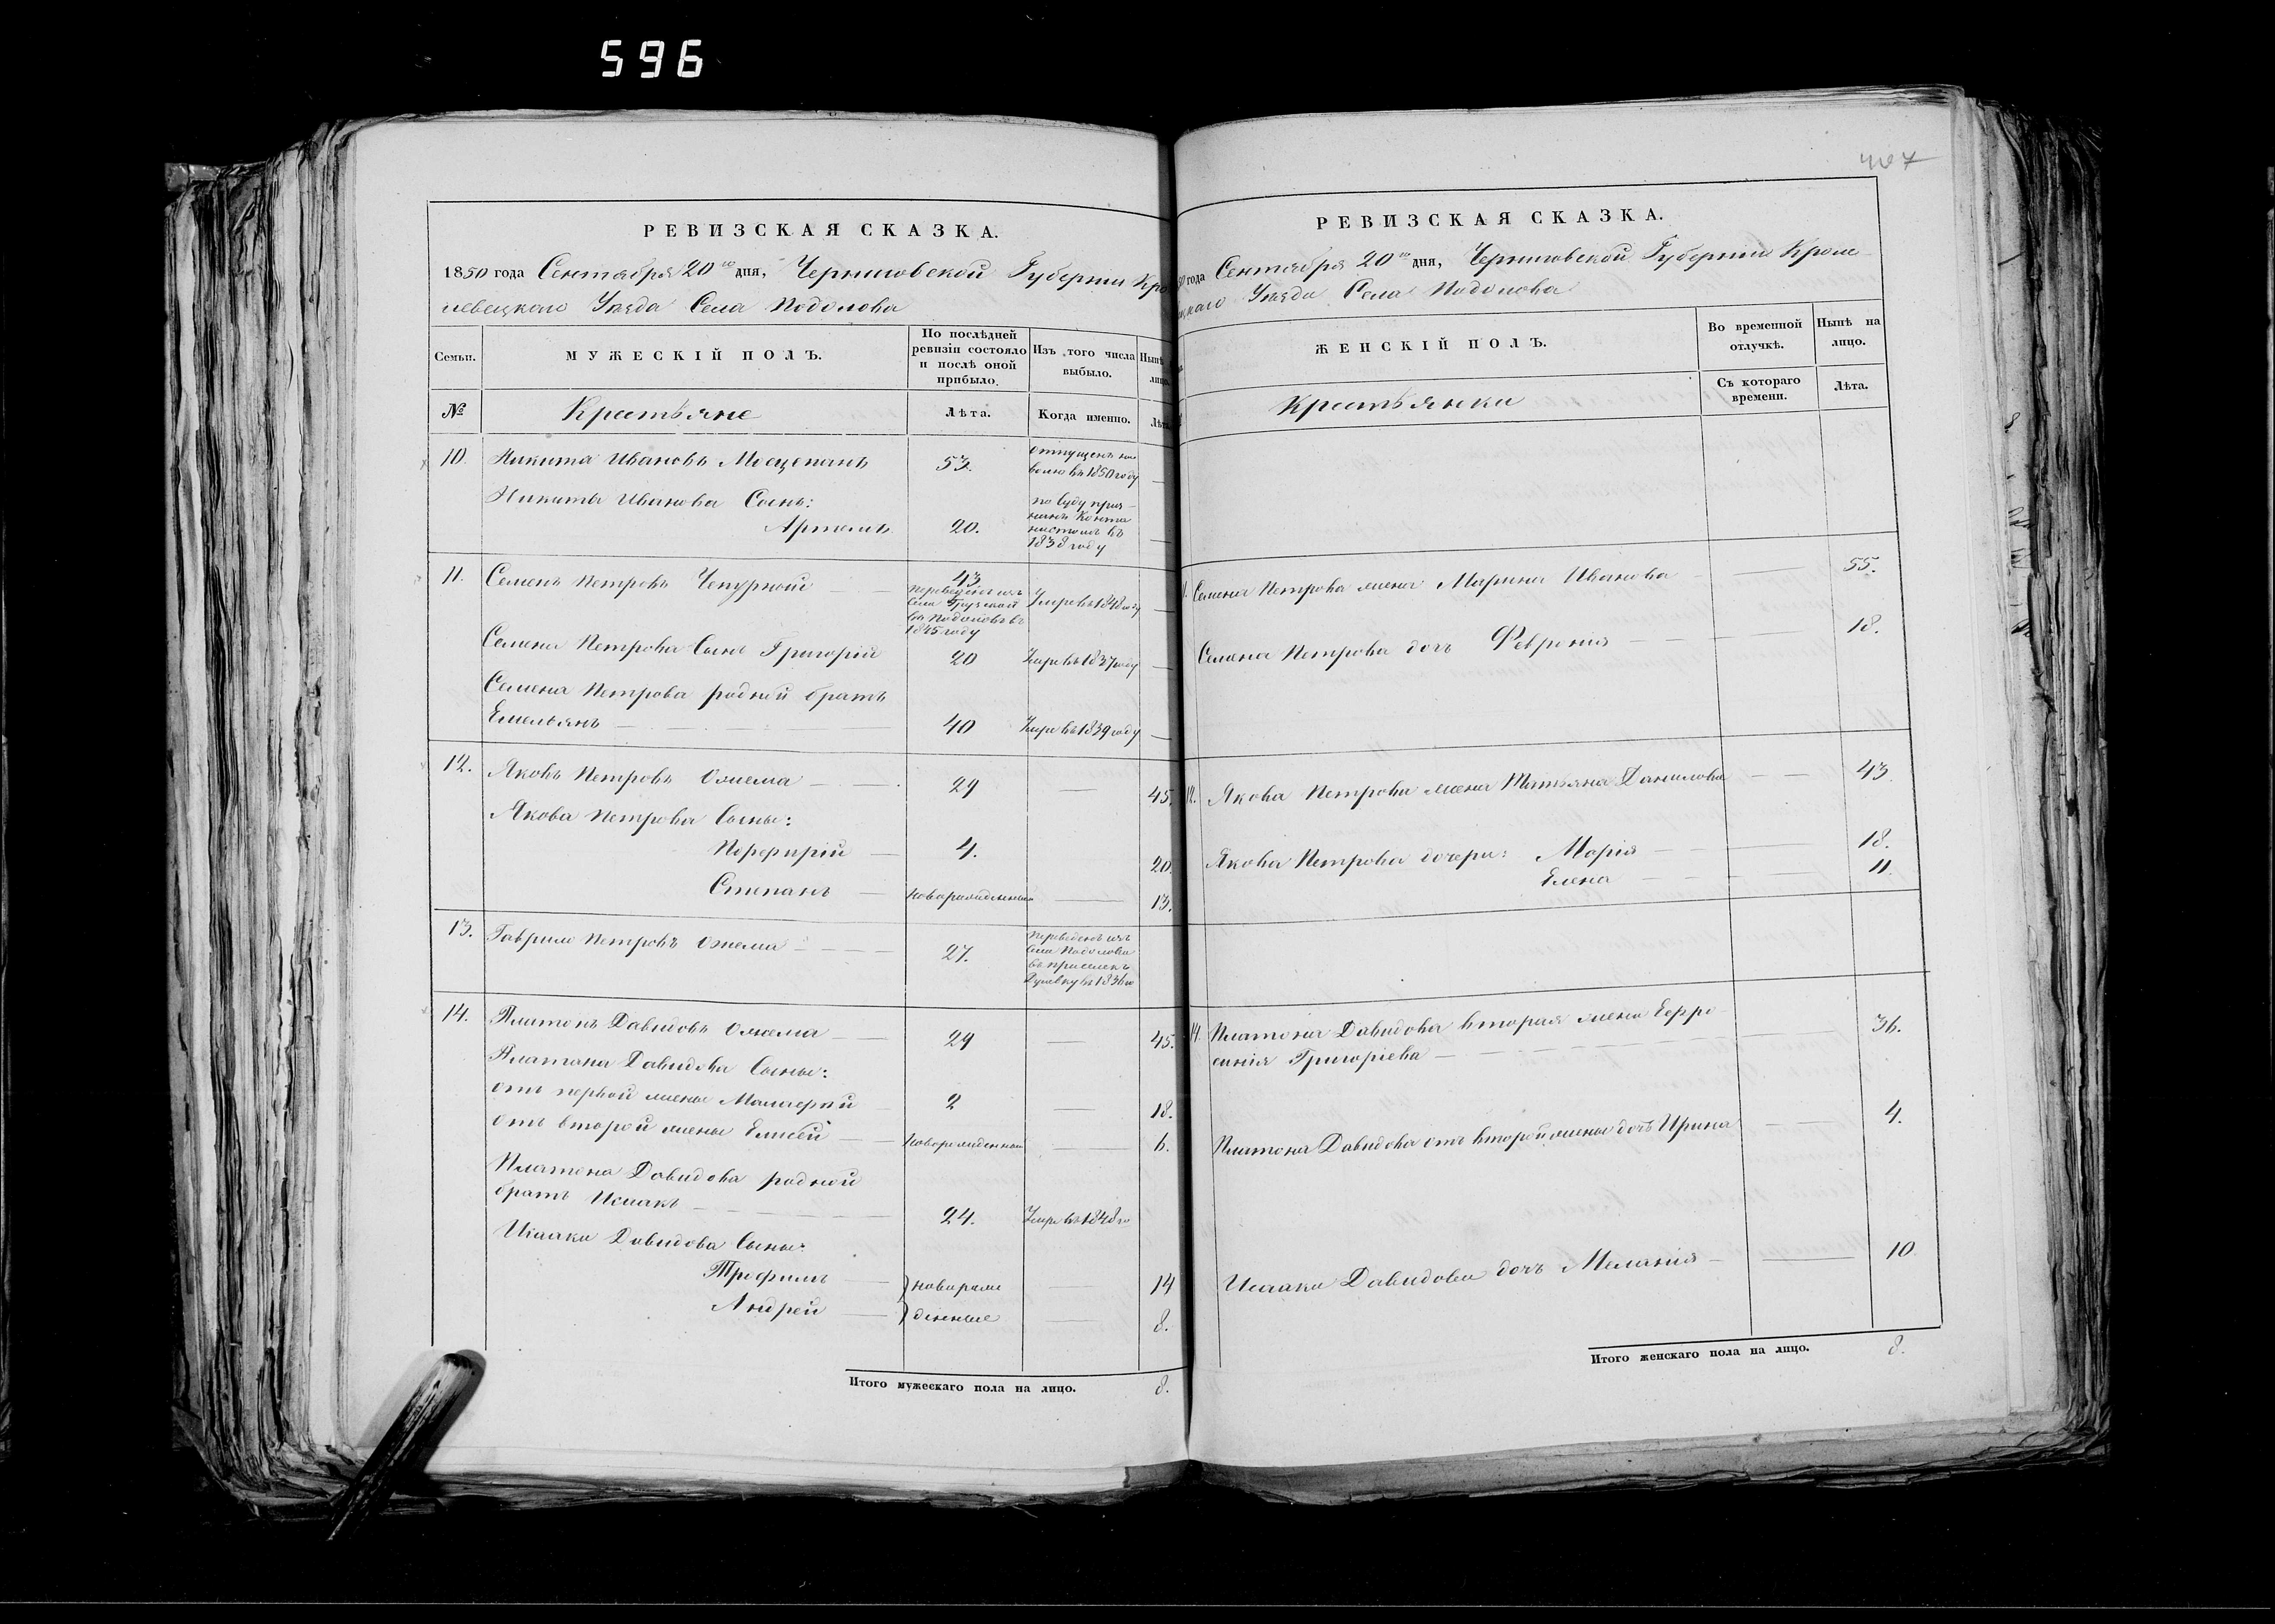 596
РЕВИЗСКАЯ СКАЗКА.
1850 года Сентября 20го дня, Черниговской Губернии Кро
левецкаго Уезда Села Подолова
Семьи.
МУЖЕСКІЙ ПОЛЪ.
По послѣдней ревизіи состояло и послѣ оной прибыло.
Изъ того числа выбыло.
Нынѣ лицо.
№
Крестьяне
Лѣта.
Когда именно.
Лѣта
10. Никита Ивановъ 53. отпущенъ на волю въ 1850 году —
Никиты Иванова Сынъ:
Артемъ 20. по Суду приз- нанъ въ 1838 году —
11. Семенъ Петровъ Чепурной 43 Переведенъ изъ Села Грузской въ Подоловъ въ 1845 году Умре въ 1848 году —
Семена Петрова Сынъ Григорій 20 Умре въ 1837 году —
Семена Петрова родной братъ
Емельянъ 40 Умре въ 1839 году —
12. Яковъ Петровъ Ожема 29 — 45.
Якова Петрова Сыны:
Порфирій 4. 20.
Степанъ новорожденный — 13.
13. Гаврило Петровъ Ожема 27. Переведенъ изъ Села Подолова въ приселекъ въ 1836 го
14. Платонъ Давидовъ Ожема 29 — 45.
Платона Давидова Сыны:
отъ первой жены 2 — 18.
отъ второй жены Елисей новорожденный — 6.
Платона Давидова родной
братъ Исаакъ 24. Умре въ 1848 го
Исаака Давидова Сыны:
Трофимъ } новорож — 14
Андрей } денные — 8.
Итого мужескаго пола на лицо. 8.
407
РЕВИЗСКАЯ СКАЗКА.
50 года Сентября 20го дня, Черниговской Губерніи Кроле
цкаго Уезда Села Подолова
ЖЕНСКІЙ ПОЛЪ.
Во временной отлучкѣ.
Нынѣ на лицо.
Крестьянки
Съ котораго времени.
Лѣта.
Семена Петрова жена Марина Иванова — 55.
Семена Петрова дочь Февронія — 18.
12. Якова Петрова жена Татьяна Данилова — 43.
Якова Петрова дочери: Марія — 18.
Елена — 11.
14. Платона Давидова вторая жена Евфро
синія Григоріева — 36.
Платона Давидова отъ второй жены дочь Ирина — 4.
Исаака Давидова дочь Меланія — 10.
Итого женскаго пола на лицо. 8.